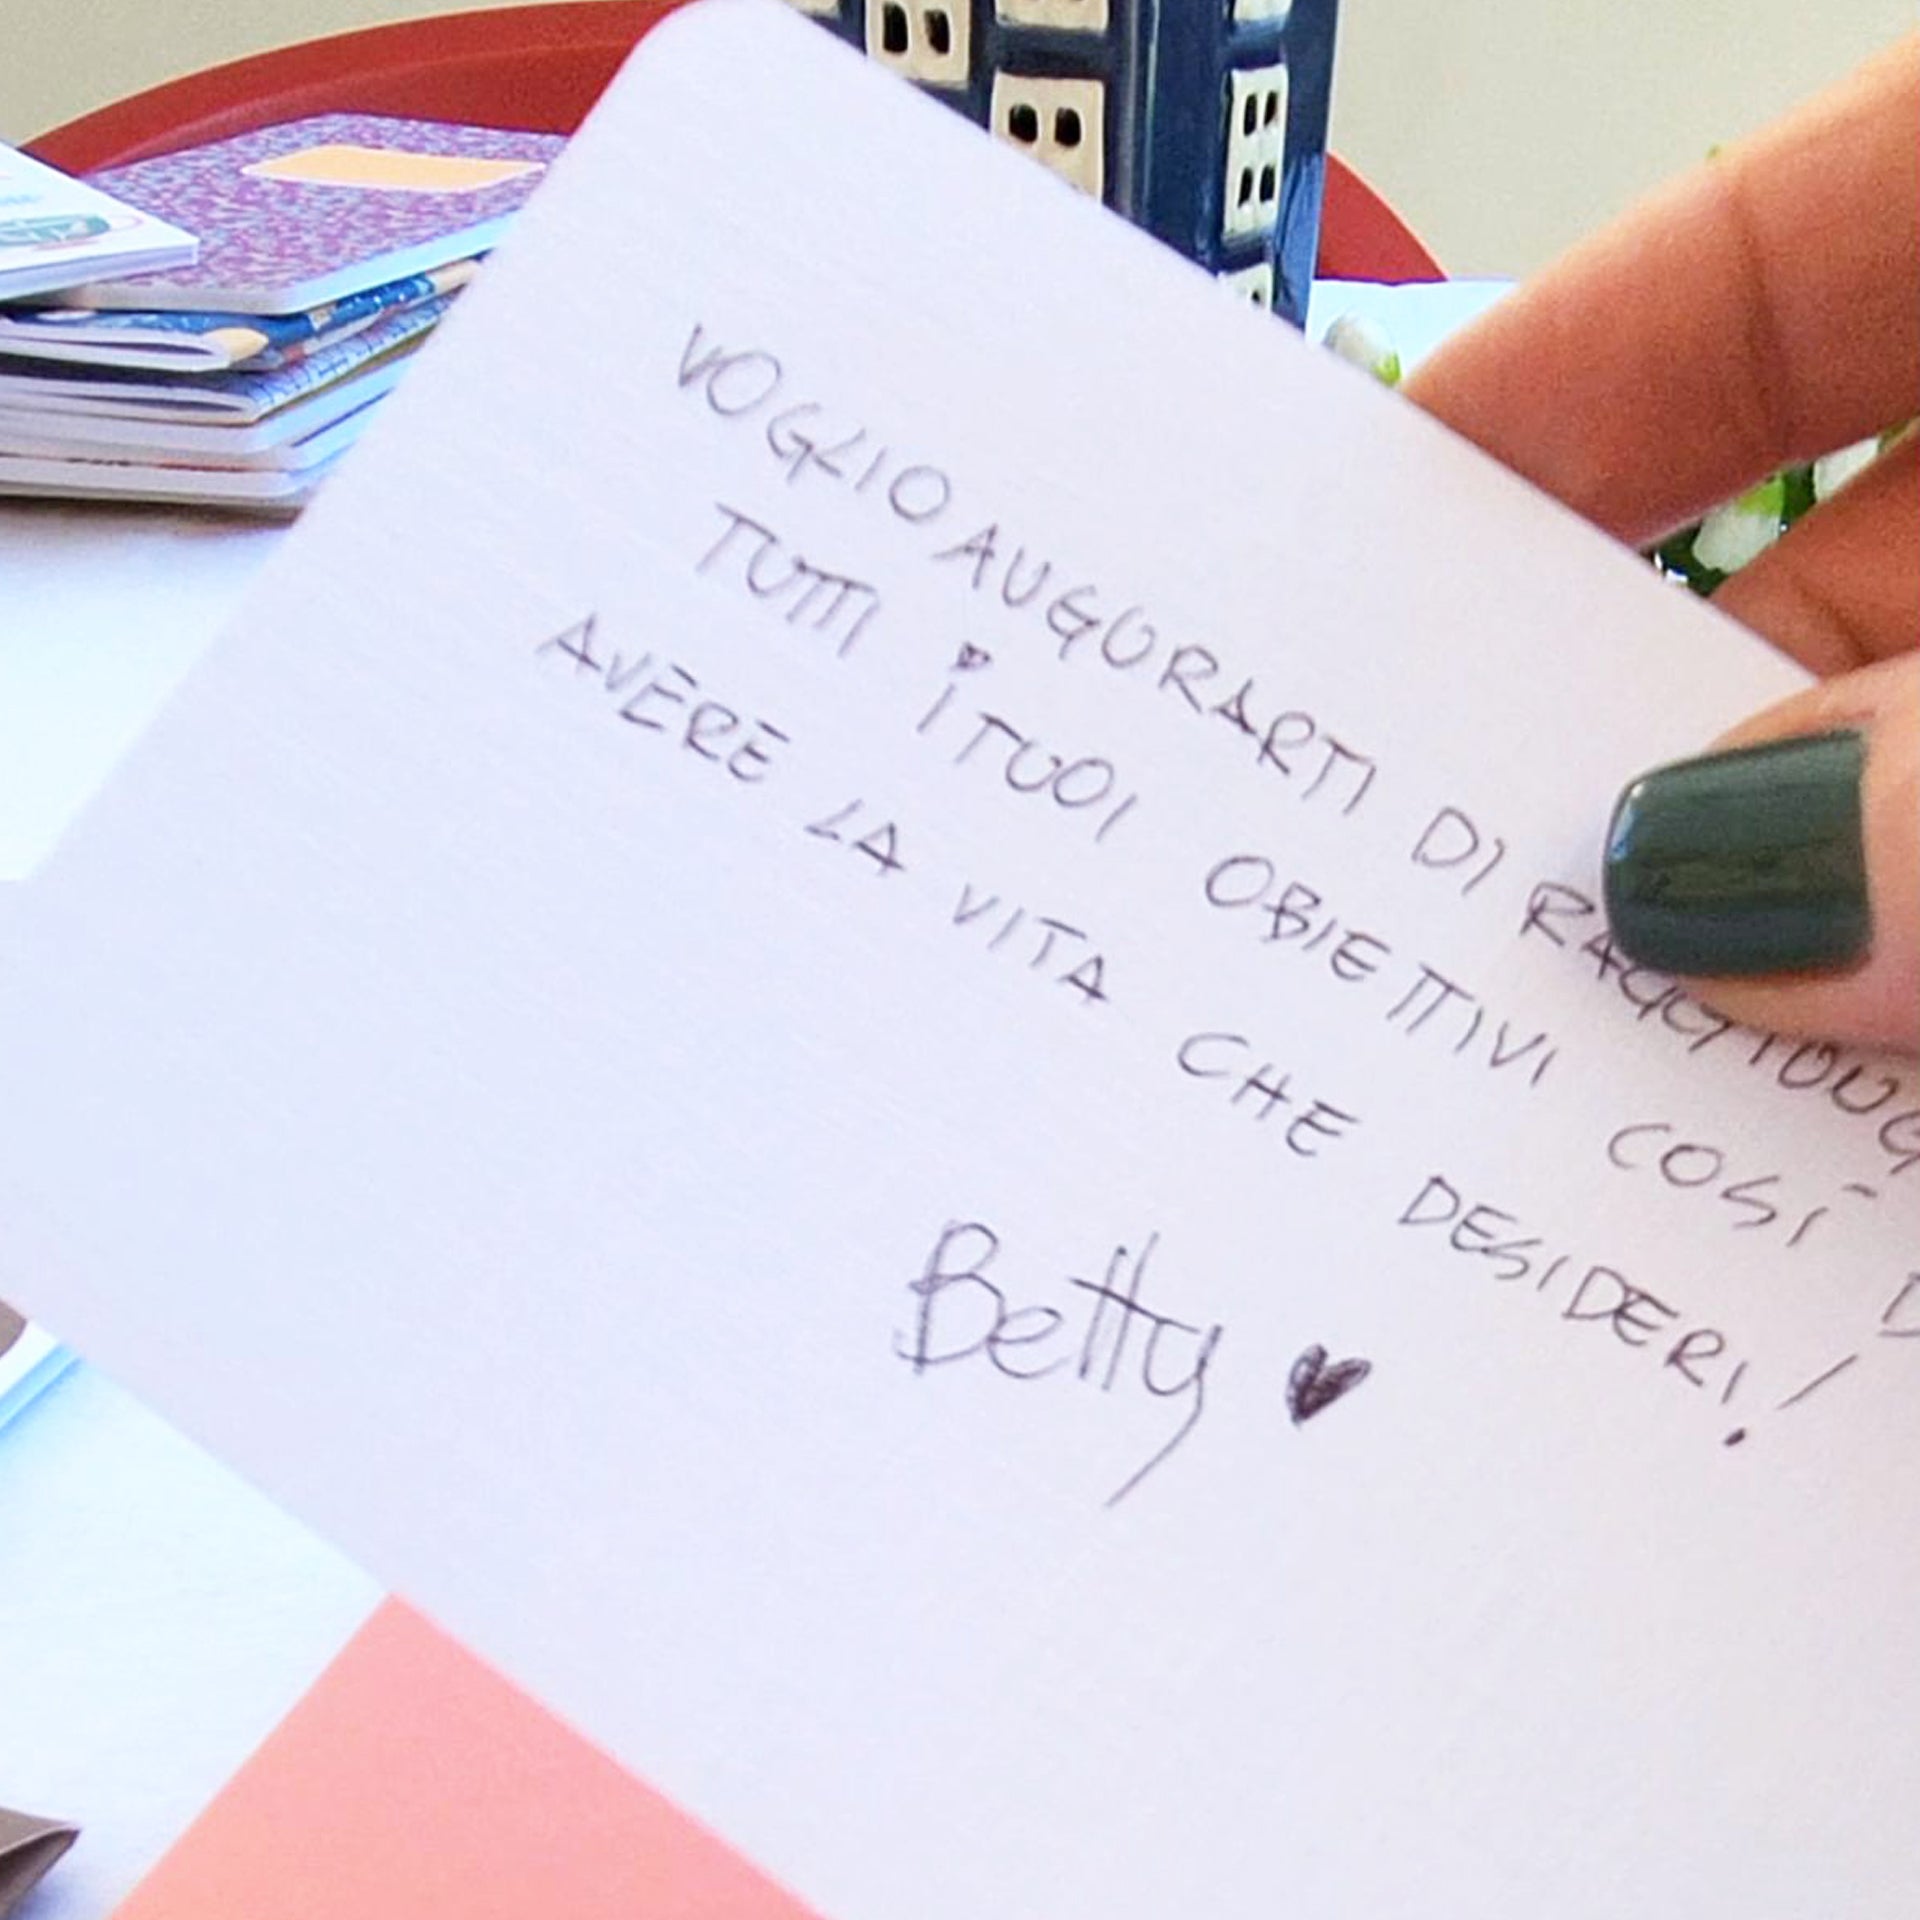 VOGLIO AUGURARTI DI RAGGIUNG
TUTTI i TUOI OBIETTIVI COSÍ D
AVERE LA VITA CHE DESIDERI!
Betty ♥